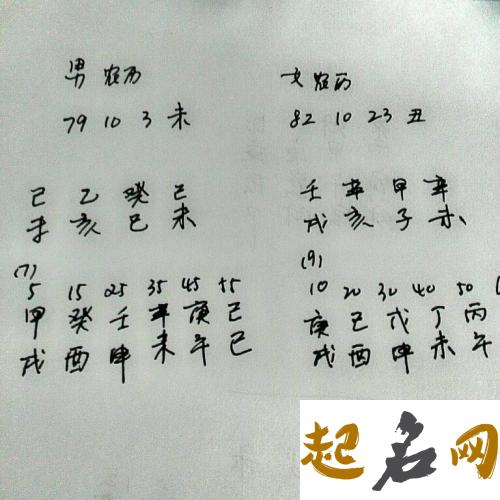 男 农历
79 10 3 未
己 乙 癸 己
未 亥 巳 未
(7)
5 15 25 35 45 55
甲 癸 壬 辛 庚 己
戌 酉 申 未 午 巳
女 农历
82 10 23 丑
壬 辛 甲 辛
戌 亥 子 未
(9)
10 20 30 40 50
庚 己 戊 丁 丙
戌 酉 申 未 午
起名网